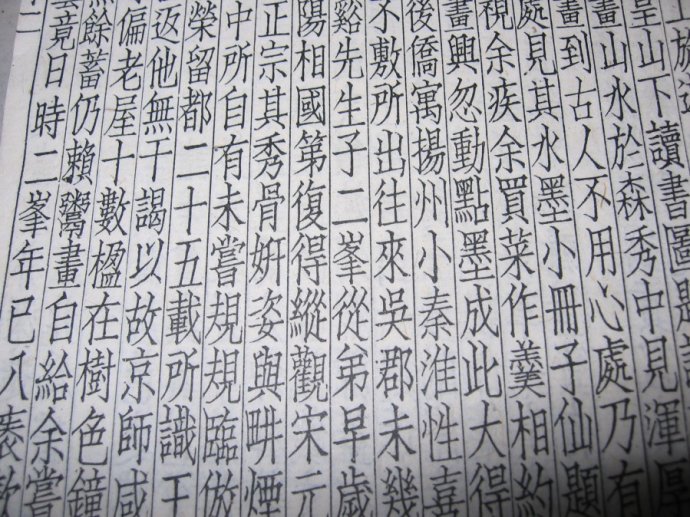 呈山下讀書圖題
畫山水於森秀中見渾厚
畫到古人不用心處乃有
處見其水墨小冊子仙題
視余疾余買菜作羹相約
畫興忽動點墨成此大得
後僑寓揚州小秦淮性喜
不敷所出往來吳郡未幾
谿先生子二峯從弟早歲
陽相國第復得縱觀宋元
正宗其秀骨妍姿與畊煙
中所自有未嘗規規臨倣
榮留都二十五載所識工
返他無干謁以故京師咸
偏老屋十數楹在樹色鐘
餘蓄仍賴鬻畫自給余嘗
竟日時二峯年已入表